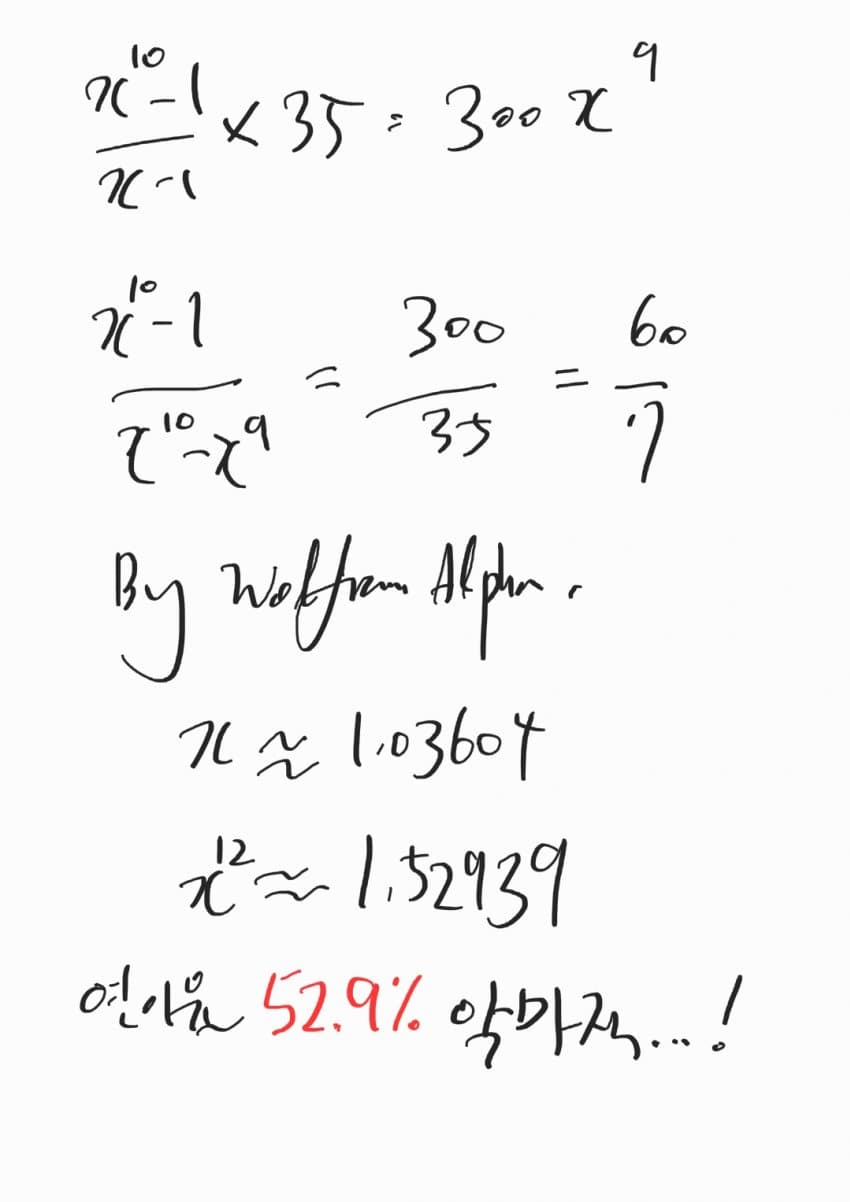 x^10-1 / x-1 × 35 = 300 x^9
x^10-1 / x^10-x^9 = 300/35 = 60/7
By Wolfram Alpha,
x ≈ 1.03604
x^12 ≈ 1.52939
연이율 52.9% 악마적...!